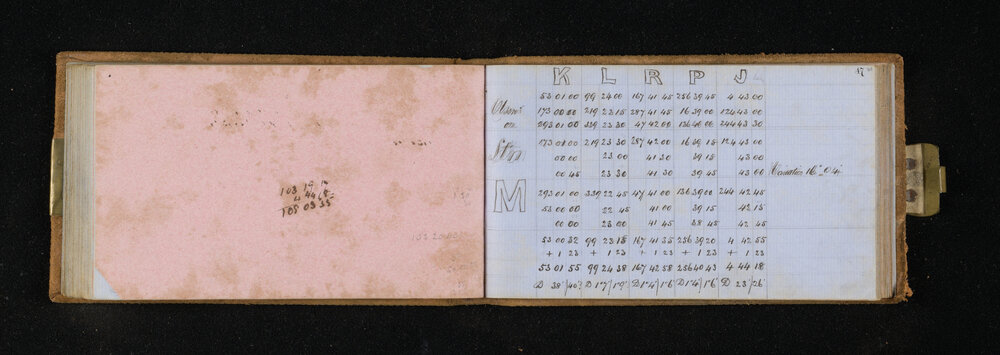 103 19 17
4 44 18
108 03 35
K L R P J
47
53 01 00 99 24 00 167 41 45 256 39 45 4 43 00
Obsns 173 00 00 219 23 15 287 41 45 16 39 00 124 43 00
on 293 01 00 339 23 30 47 42 00 136 40 00 244 43 30
Stn 173 01 00 219 23 30 287 42 00 16 39 15 124 43 00
00 00 23 00 41 30 39 15 43 00
00 45 23 30 41 30 39 45 43 00 Variation 16° 0'4"
M 293 01 00 339 22 45 47 41 00 136 39 00 244 42 45
53 00 00 22 45 41 00 39 15 42 15
00 00 23 00 41 45 38 45 42 45
53 00 32 99 23 15 167 41 35 256 39 20 4 42 55
+ 1 23 + 1 23 + 1 23 + 1 23 + 1 23
53 01 55 99 24 38 167 42 58 256 40 43 4 44 18
D 38' /40' D 1°7' /1°9' D 1°4' /1°6' D 1°4' /1°6' D 23' /26'